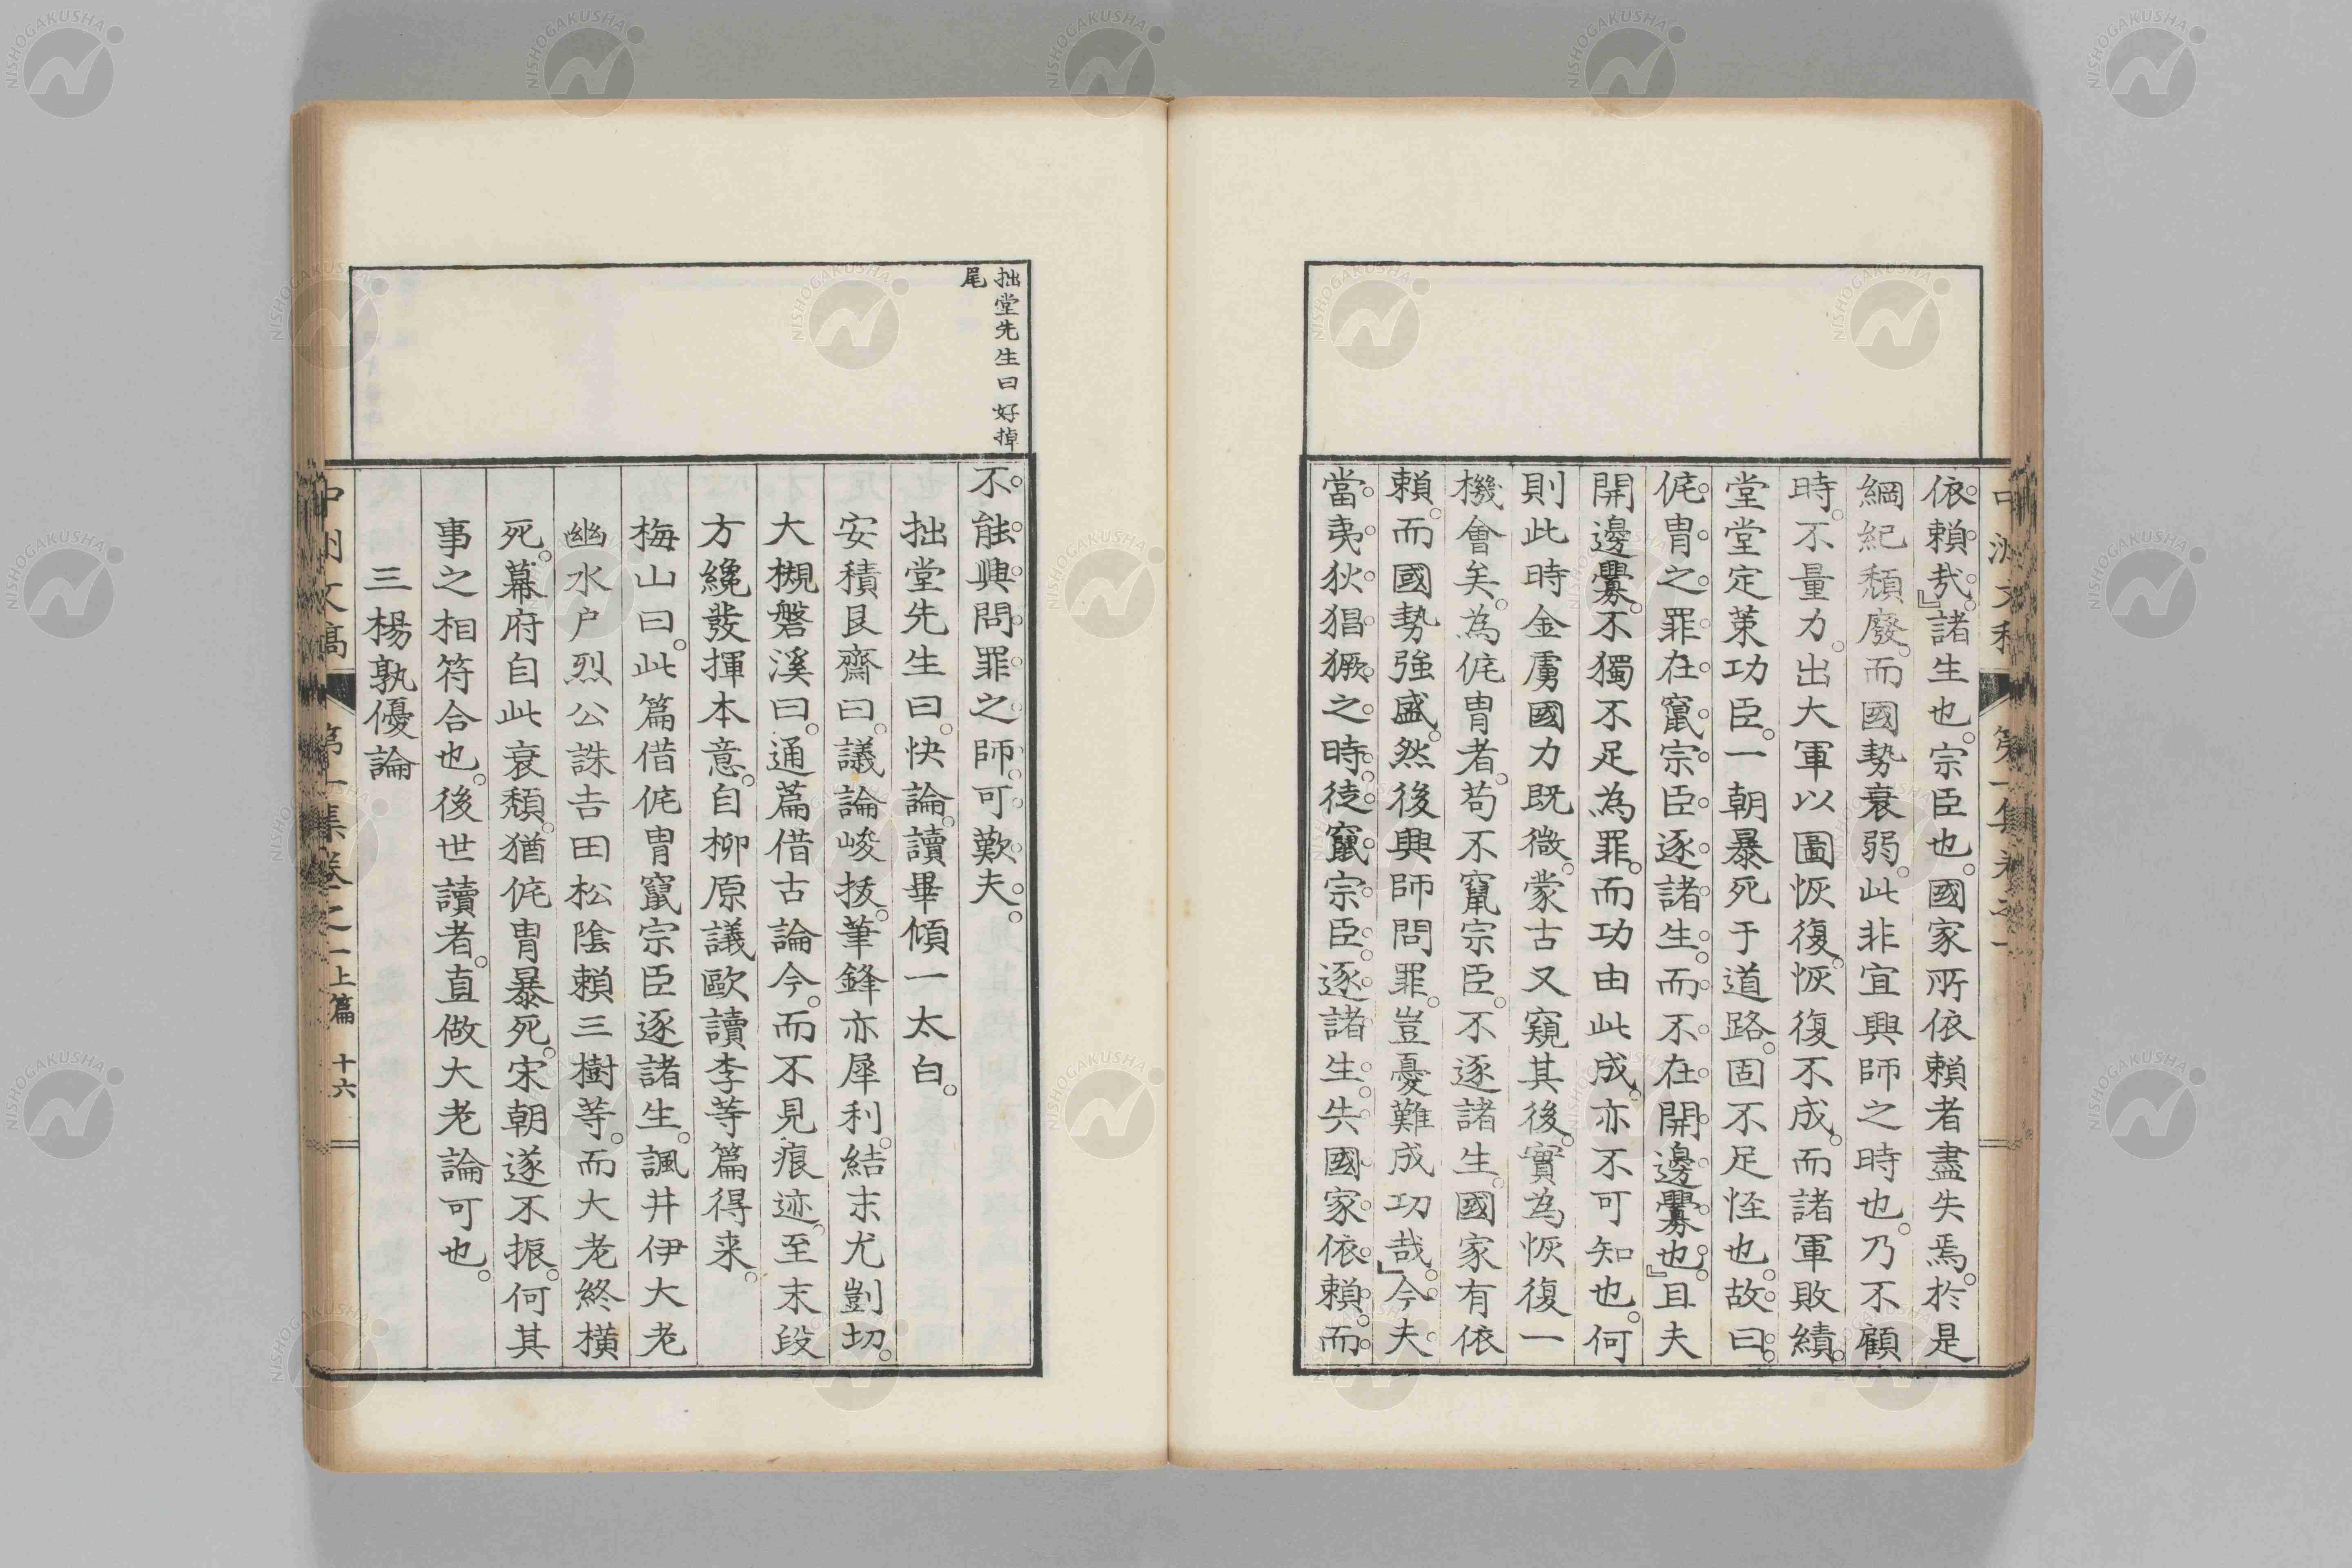 依賴哉。諸生也。宗臣也。國家所依賴者盡失焉。於是
綱紀頽廢。而國勢衰弱。此非宜興師之時也。乃不顧
時。不量力。出大軍以圖恢復。恢復不成。而諸軍敗績。
堂堂定策功臣。一朝暴死于道路。固不足怪也。故曰。
侂冑之罪。在竄宗臣。逐諸生。而不在開邊釁也。且夫
開邊釁。不獨不足為罪。而功由此成。亦不可知也。何
則此時金虜國力既微。蒙古又窺其後。實為恢復一
機會矣。為侂冑者。苟不竄宗臣。不逐諸生。國家有依
賴。而國勢強盛。然後興師問罪。豈憂難成功哉。今夫
當夷狄猖獗之時。徒竄宗臣。逐諸生。失國家依賴。而
拙堂先生曰好掉
尾
不能興問罪之師。可歎夫。
拙堂先生曰。快論。讀畢傾一太白。
安積艮齋曰。議論峻拔。筆鋒亦犀利。結末尤剴切。
大槻磐溪曰。通篇借古論今。而不見痕迹。至末段
方纔發揮本意。自柳原議歐讀李等篇得来。
梅山曰。此篇借侂冑竄宗臣逐諸生。諷井伊大老
幽水戶烈公誅吉田松陰賴三樹等。而大老終橫
死。幕府自此衰頽。猶侂冑暴死。宋朝遂不振。何其
事之相符合也。後世讀者。直做大老論可也。
三楊孰優論
中洲文稿 第一集卷之一上篇 十六